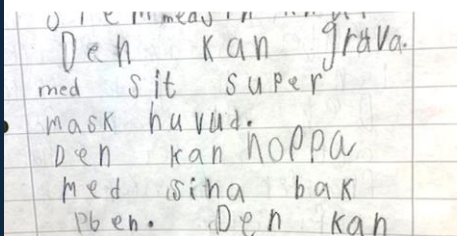 Den kan grava.
med sit super
mask huvud.
Den kan hoppa
med sina bak
Pben. Den kan